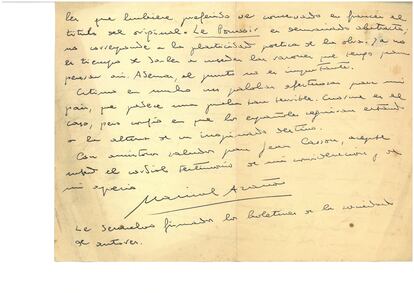 ler que hubiera preferido ver conservado en francés el
título del original. Le Pouvoir es demasiado abstracto;
no corresponde a la plasticidad poética de la obra. Ya no
es tiempo de darle a usted las razones que tengo para
pensar así. Además, el punto no es importante.
Estimo en mucho sus palabras afectuosas para mi
país, que padece una prueba tan terrible. Enorme es el
caso, pero confío en que los españoles seguirán estando
a la altura de su inopinado destino.
Con amistosos saludos para Jean Cassou, acepte
usted el cordial testimonio de mi consideración y de
mi aprecio
Manuel Azaña
Le devuelvo firmados los boletines de la sociedad
de autores.